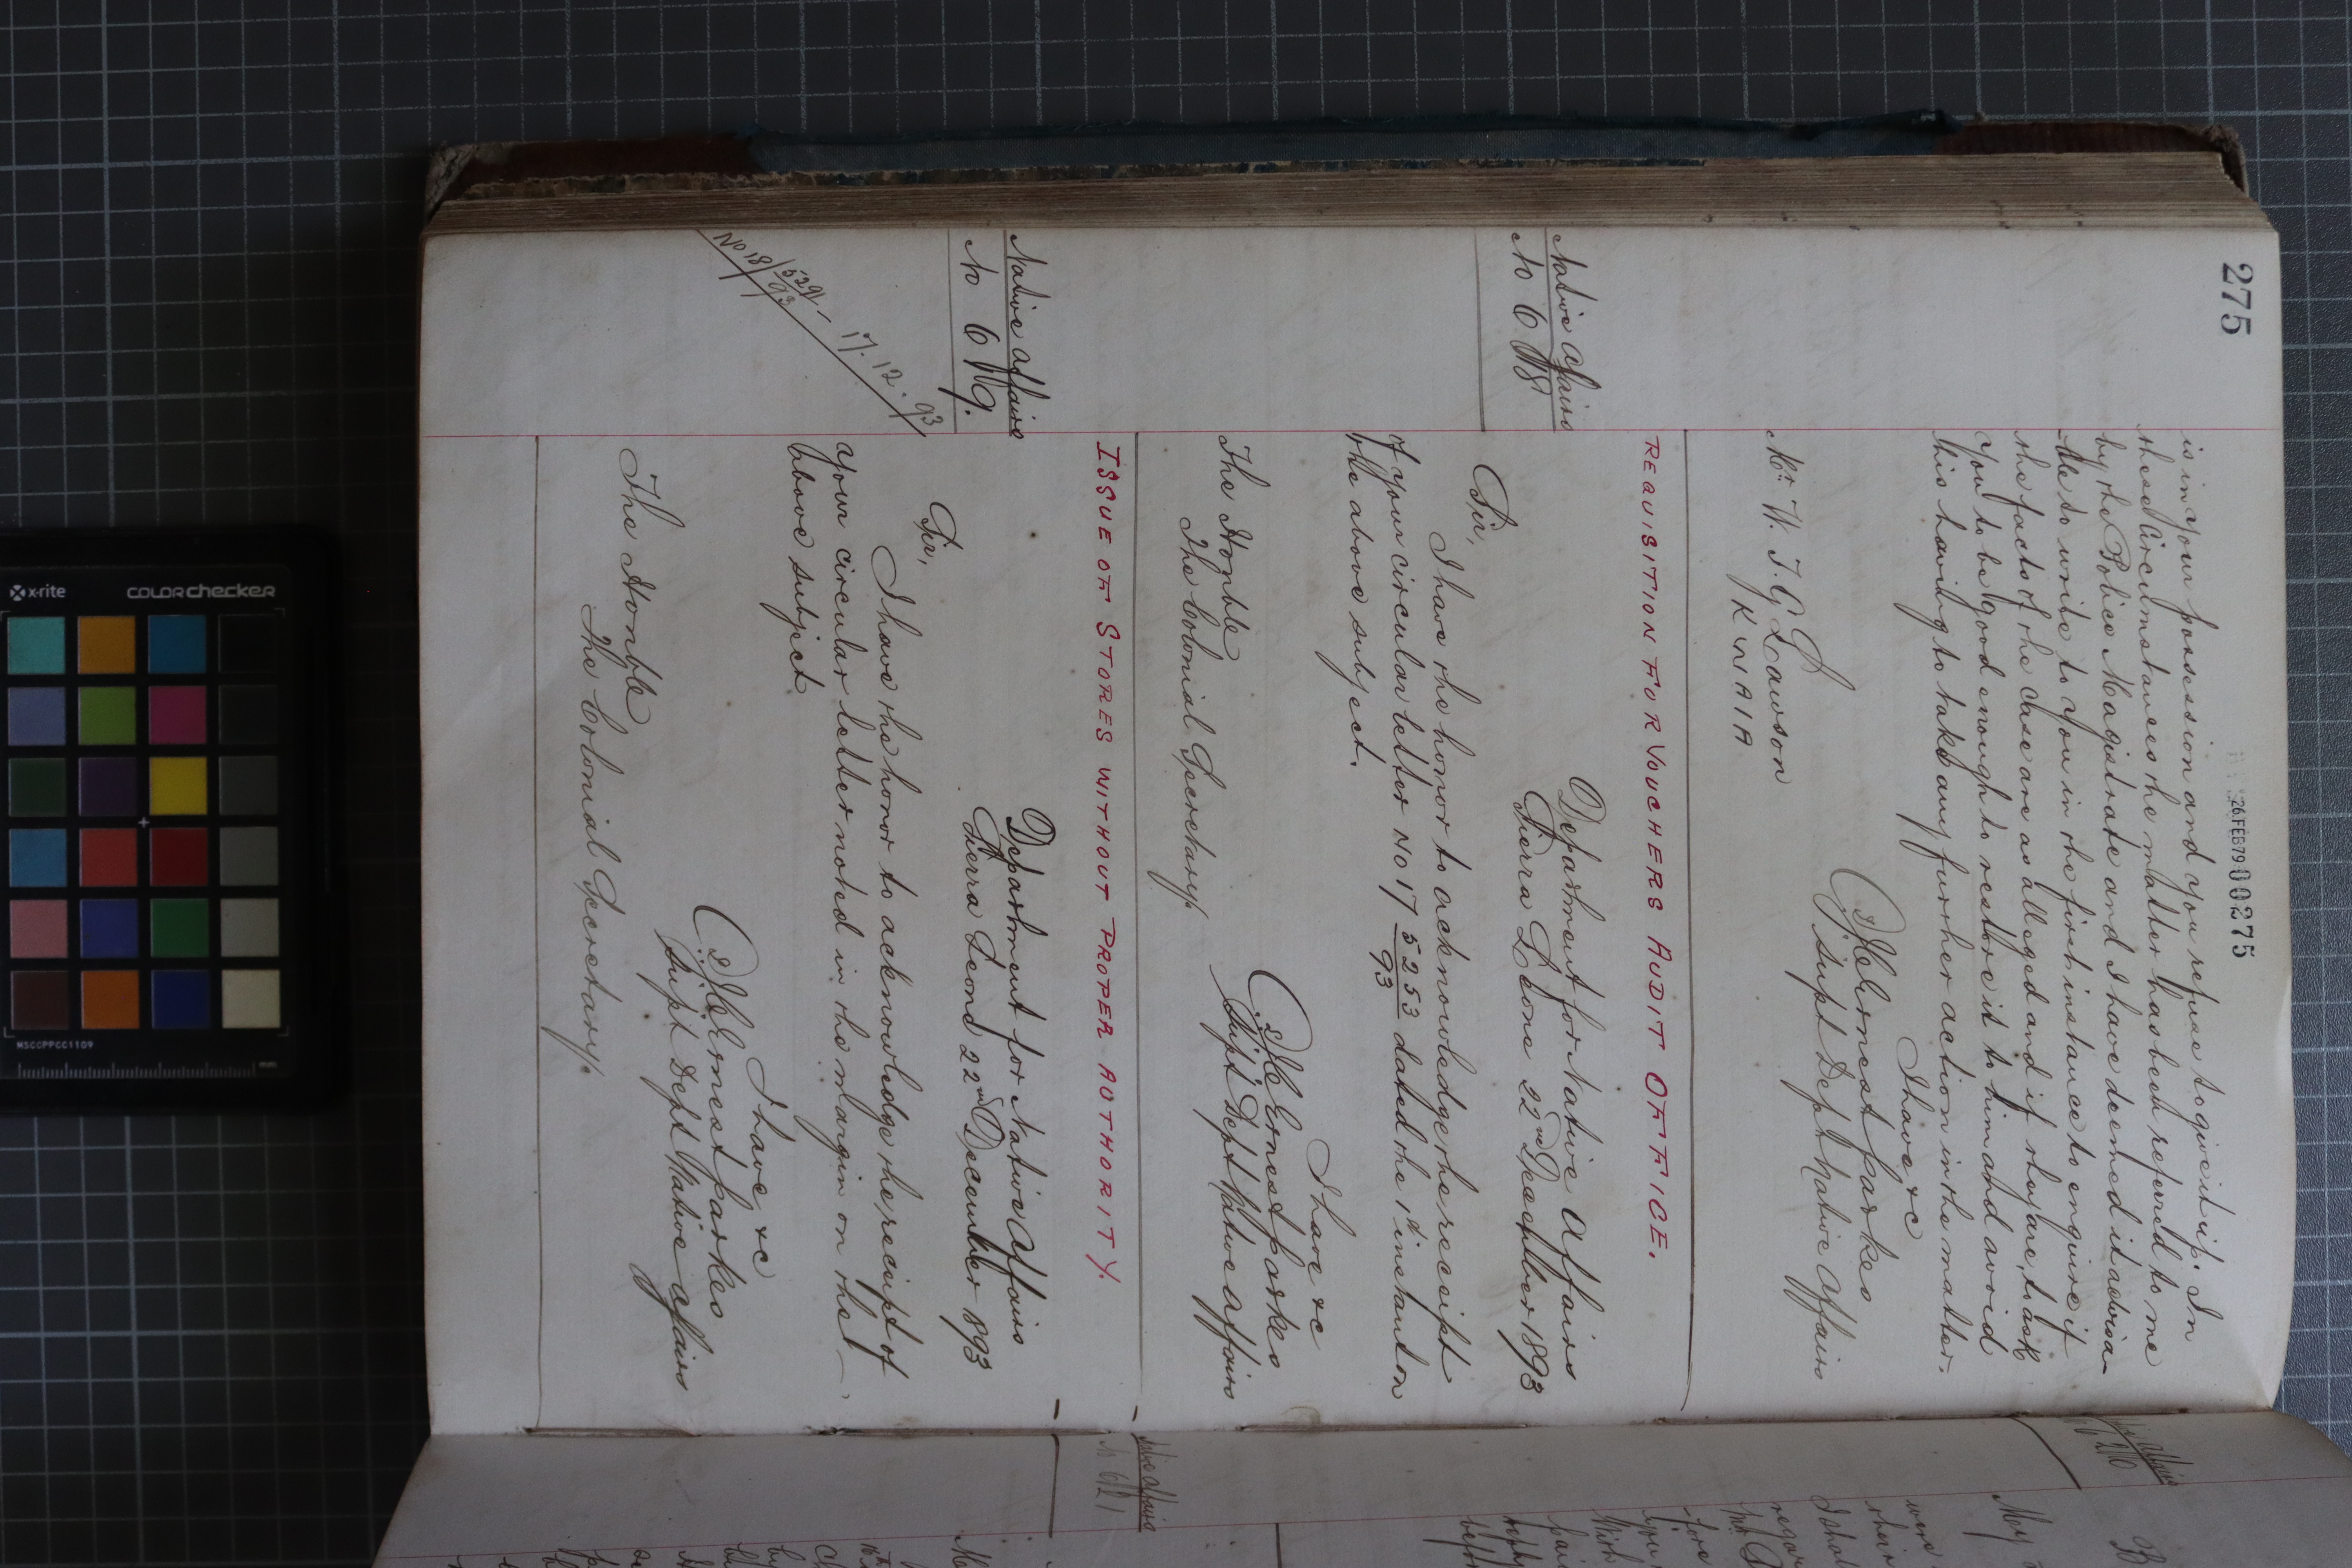 275
26 FEB 79 00275
is in your possession and you refuse to give it up. In
these Circumstances the matter has been referred to me
by the Police Magistrate and I have deemed it advisa-
ble to write to you in the first instance to enquire if
the facts of the case are as alleged and if they are, to ask
you to be good enough to restore it to him and avoid
his having to take any further action in the matter.
I have &c
J C Ernest Parkes
Supt Dept Native Affairs
Mr W. T. G Lawson
KWAIA
REQUISITION FOR VOUCHERS AUDIT OFFICE.
Native Affairs
No 618
Department for Native Affairs
Sierra Leone 22nd December 1893
Sir,
I have the honor to acknowledge the receipt
of your circular letter No 17 5253/93 dated the 1st instant on
the above subject.
I have &c
J C Ernest Parkes
Supt Dept Native Affairs
The Honble
The Colonial Secretary.
ISSUE OF STORES WITHOUT PROPER AUTHORITY.
Native Affairs
No 619.
Department for Native Affairs
Sierra Leone 22nd December 1893
Sir,
I have the honor to acknowledge the receipt of
your circular letter noted in the margin on the
above subject
No 18/5291/93 17.12.93
I have &c
J C Ernest Parkes
Supt Dept Native Affairs
The Honble
The Colonial Secretary.
Native Affairs
No 621
x-rite
colorchecker
MSCCPPCC1109
mm